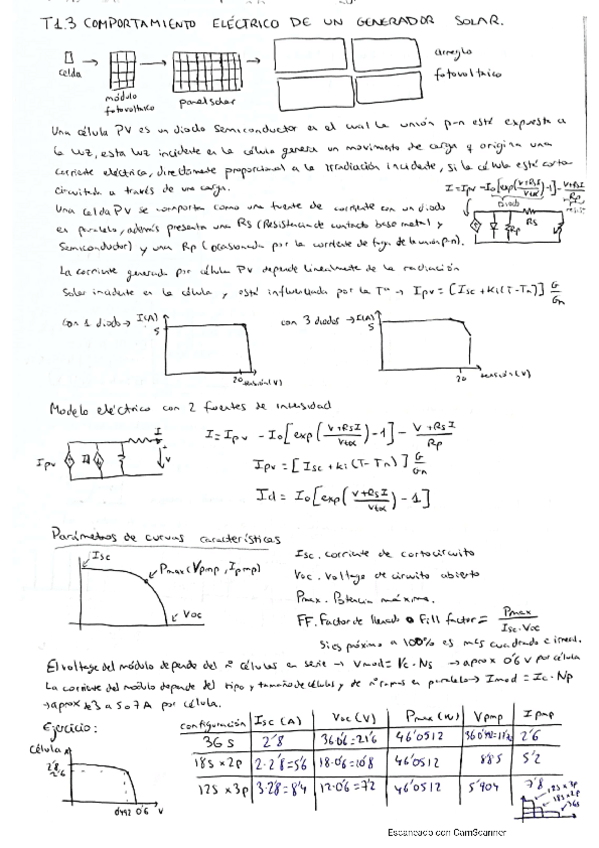 T1.3 COMPORTAMIENTO ELÉCTRICO DE UN GENERADOR SOLAR.
celda
módulo fotovoltaico
panel solar
arreglo fotovoltaico
Una célula PV es un diodo semiconductor en el cual la unión p-n está expuesta a
la luz, esta luz incidente en la célula genera un movimiento de carga y origina una
corriente eléctrica, directamente proporcional a la irradiación incidente, si la célula está corto
circuitada a través de una carga.
I = Ipv - I0[exp(V+RsI/Vtα)-1] - V+RsI/Rp
Diodo
Una celda PV se comporta como una fuente de corriente con un diodo
en paralelo, además presenta una Rs (Resistencia de contacto base metal y
Semiconductor) y una Rp (ocasionada por la corriente de fuga de la unión p-n).
Rs
Rp
La corriente generada por célula PV depende linealmente de la radiación
solar incidente en la célula y está influenciada por la Tª → Ipv = [Isc + ki(T-Tn)] G/Gn
con 1 diodo → I(A)
5
20 tensión(V)
con 3 diodos → I(A)
5
20 tensión(V)
Modelo eléctrico con 2 fuentes de intensidad
Ipv
I
V
I = Ipv - I0[exp(V+RsI/Vtα)-1] - V+RsI/Rp
Ipv = [Isc + ki(T-Tn)] G/Gn
Id = I0[exp(V+RsI/Vtα)-1]
Parámetros de curvas características
Isc
Pmax(Vpmp, Ipmp)
Voc
Isc. corriente de cortocircuito
Voc. Voltage de circuito abierto
Pmax. Potencia máxima.
FF. Factor de llenado o Fill factor = Pmax/Isc·Voc
Si es próximo a 100% es más cuadrado e ineal.
El voltage del módulo depende del nº células en serie → Vmod = Vc·Ns → aprox 0'6 V por célula
La corriente del módulo depende del tipo y tamaño de células y de nº ramas en paralelo → Imod = Ic·Np
→ aprox 3 a 5 o 7A por célula.
Ejercicio:
Célula A
2'8
2'6
0'492 0'6 V
configuración Isc (A) Voc (V) Pmax (W) Vpmp Ipmp
36 s 2'8 36·0'6=21'6 46'0512 2'6
18s x 2p 2·2'8=5'6 18·0'6=10'8 46'0512 8'85 5'2
12s x 3p 3·2'8=8'4 12·0'6=7'2 46'0512 5'904 7'8
12s x 3p
18s x 2p
36s
Escaneado con CamScanner